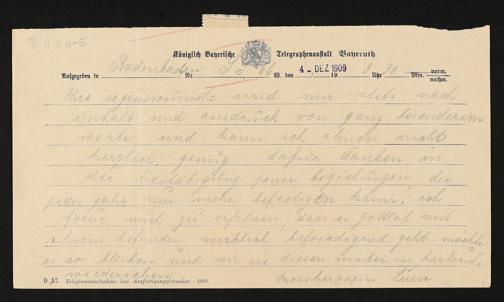 III A 3 d-5
Königlich Bayerische Telegraphenanstalt Bayreuth.
Aufgegeben in Badenbaden Nr. W. den 4 - DEZ 1909 19 Uhr 30 Min. vorm. nachm.
Ihre segenswünsche sind mir stets nach
inhalt und ausdruck von ganz besonderem
werte und kann ich ihnen nicht
herzlich genug dafür danken in
der bestätigung jener beziehungen die
jedes jahr nur mehr befestigen kann. ich
freue mich zu erfahren, dass es gottlob mit
ihrem befinden wirklich befriedigend geht. möchte
es so bleiben und wir sie diesen winter in karlsruhe
wiedersehen Grossherzogin Luise
D 57. Telegrammaufnahme- bzw. Ausfertigungsformular 1909.